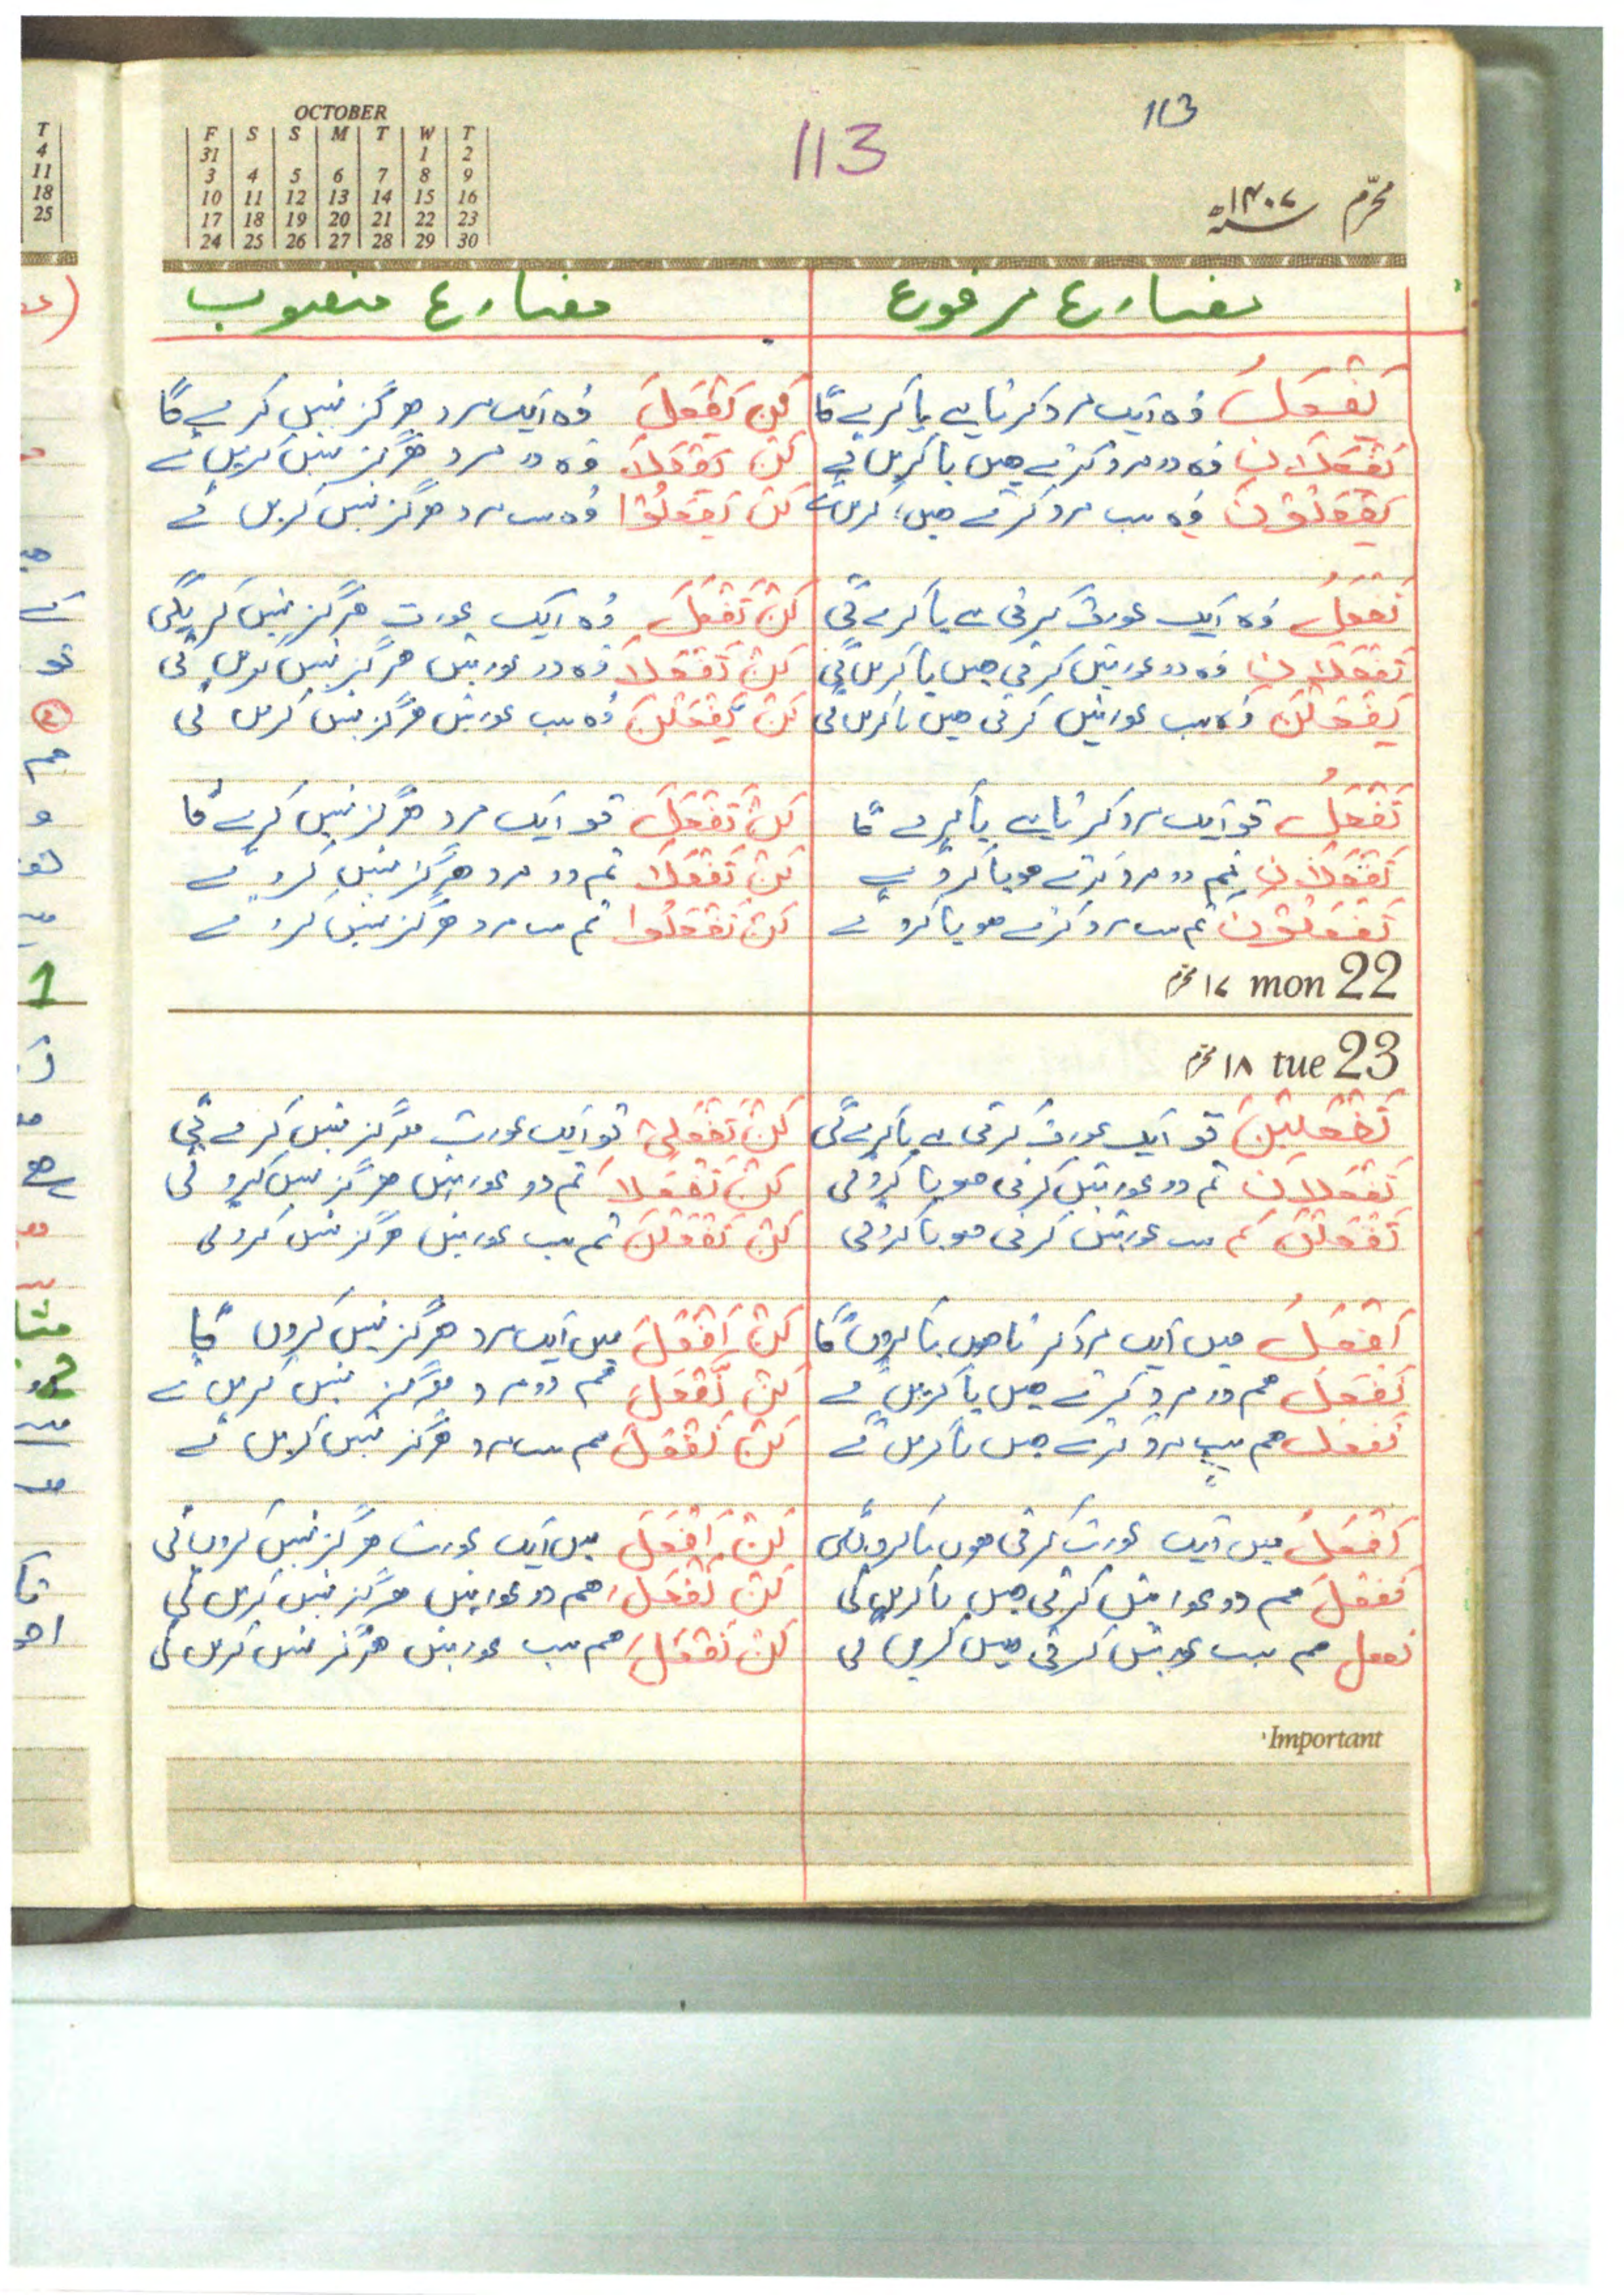 OCTOBER
F S S M T W T
31 1 2
3 4 5 6 7 8 9
10 11 12 13 14 15 16
17 18 19 20 21 22 23
24 25 26 27 28 29 30
113
113
محرّم ۱۴۰۷ھ
مضارع مرفوع
مضارع منصوب
یَفْعَلُ وُہ ایک مرد کرتا ہے یا کرے گا
لَنْ یَفْعَلَ وُہ ایک مرد ہرگز نہیں کرے گا
یَفْعَلَانِ وُہ دو مرد کرتے ہیں یا کریں گے
لَنْ یَفْعَلَا وُہ دو مرد ہرگز نہیں کریں گے
یَفْعَلُوْنَ وُہ سب مرد کرتے ہیں، کریں گے
لَنْ یَفْعَلُوْا وُہ سب مرد ہرگز نہیں کریں گے
تَفْعَلُ وُہ ایک عورت کرتی ہے یا کرے گی
لَنْ تَفْعَلَ وُہ ایک عورت ہرگز نہیں کریگی
تَفْعَلَانِ وُہ دو عورتیں کرتی ہیں یا کریں گی
لَنْ تَفْعَلَا وُہ دو عورتیں ہرگز نہیں کریں گی
یَفْعَلْنَ وُہ سب عورتیں کرتی ہیں یا کریں گی
لَنْ یَفْعَلْنَ وُہ سب عورتیں ہرگز نہیں کریں گی
تَفْعَلُ تو ایک مرد کرتا ہے یا کرے گا
لَنْ تَفْعَلَ تو ایک مرد ہرگز نہیں کرے گا
تَفْعَلَانِ تم دو مرد کرتے ہو یا کرو گے
لَنْ تَفْعَلَا تم دو مرد ہرگز نہیں کرو گے
تَفْعَلُوْنَ تم سب مرد کرتے ہو یا کرو گے
لَنْ تَفْعَلُوا تم سب مرد ہرگز نہیں کرو گے
۱۷ محرّم mon 22
۱۸ محرّم tue 23
تَفْعَلِیْنَ تو ایک عورت کرتی ہے یا کرے گی
لَنْ تَفْعَلِیْ تو ایک عورت ہرگز نہیں کرے گی
تَفْعَلَانِ تم دو عورتیں کرتی ہو یا کرو گی
لَنْ تَفْعَلَا تم دو عورتیں ہرگز نہیں کرو گی
تَفْعَلْنَ تم سب عورتیں کرتی ہو یا کرو گی
لَنْ تَفْعَلْنَ تم سب عورتیں ہرگز نہیں کرو گی
اَفْعَلُ میں ایک مرد کرتا ہوں یا کروں گا
لَنْ اَفْعَلَ میں ایک مرد ہرگز نہیں کروں گا
نَفْعَلُ ہم دو مرد کرتے ہیں یا کریں گے
لَنْ نَّفْعَلَ ہم دو مرد ہرگز نہیں کریں گے
نَفْعَلُ ہم سب مرد کرتے ہیں یا کریں گے
لَنْ نَفْعَلَ ہم سب مرد ہرگز نہیں کریں گے
اَفْعَلُ میں ایک عورت کرتی ہوں یا کروں گی
لَنْ اَفْعَلَ میں ایک عورت ہرگز نہیں کروں گی
نَفْعَلُ ہم دو عورتیں کرتی ہیں یا کریں گی
لَنْ نَفْعَلَ ہم دو عورتیں ہرگز نہیں کریں گی
نفعل ہم سب عورتیں کرتی ہیں کریں گی
لَنْ نَفْعَلَ ہم سب عورتیں ہرگز نہیں کریں گی
Important